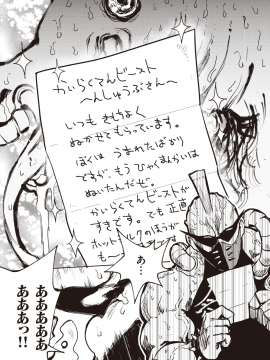 かいらくてんビースト
～んしゅうぶさん～
いつも きもちよく
ぬかせてもらっています。
ぼくは うまれたばかり
ですが、もう ひゃくまんかいは
ぬいたんだぜ。
かいらくてんビーストが
すきです。でも正直
ホット ルクのほうが
も
あ…
ああああああ
あああっ!!